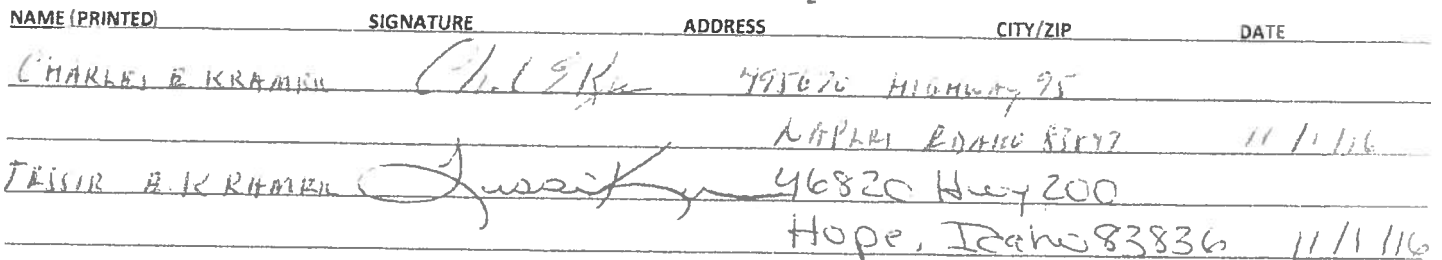 NAME (PRINTED) SIGNATURE ADDRESS CITY/ZIP DATE
CHARLES E KRAMER HIGHWAY 95
NAPLES IDAHO 83847 11/1/16
TESSIE A. KRAMER 46820 Hwy 200
Hope, Idaho 83836 11/1/16